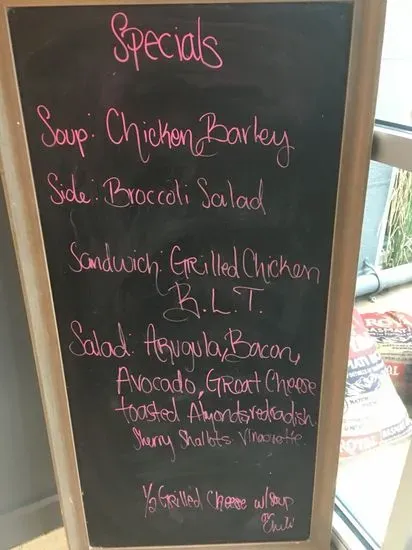 Specials
Soup: Chicken Barley
Side: Broccoli Salad
Sandwich: Grilled Chicken
B.L.T.
Salad: Arugula, Bacon,
Avocado, Groat Cheese
toasted Almonds, red radish.
Sherry Shallots Vinaorette.
1/2 Grilled Cheese w/soup
or
Chili
ROYAL